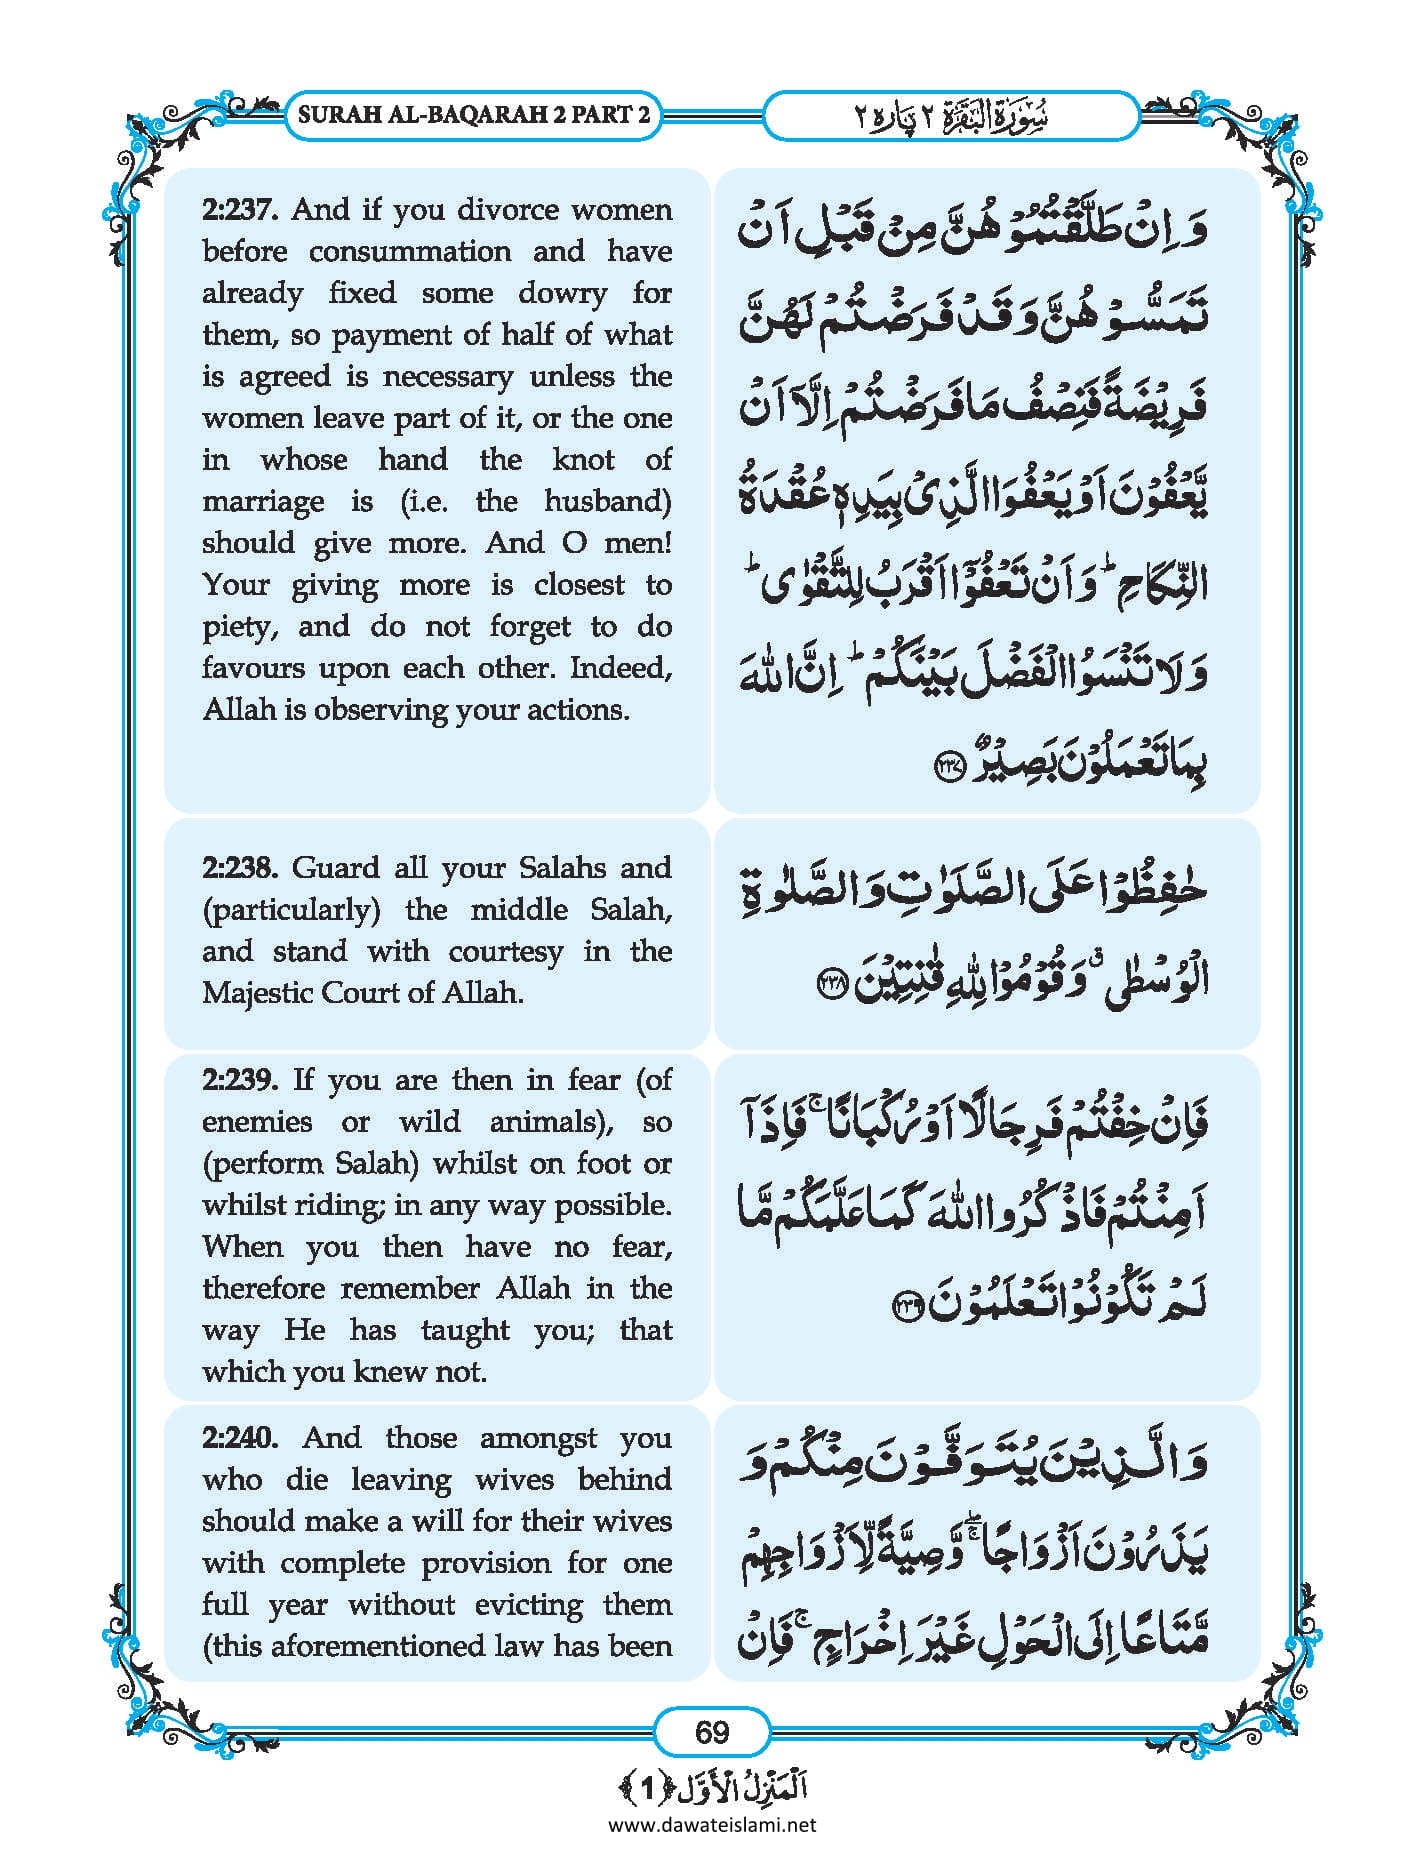 SURAH AL-BAQARAH 2 PART 2
سُوۡرَۃُ الۡبَقَرَۃِ ٢ پارہ ٢
2:237. And if you divorce women
before consummation and have
already fixed some dowry for
them, so payment of half of what
is agreed is necessary unless the
women leave part of it, or the one
in whose hand the knot of
marriage is (i.e. the husband)
should give more. And O men!
Your giving more is closest to
piety, and do not forget to do
favours upon each other. Indeed,
Allah is observing your actions.
وَ اِنۡ طَلَّقۡتُمُوۡ هُنَّ مِنۡ قَبۡلِ اَنۡ
تَمَسُّوۡ هُنَّ وَ قَدۡ فَرَضۡتُمۡ لَهُنَّ
فَرِیۡضَةً فَنِصۡفُ مَا فَرَضۡتُمۡ اِلَّاۤ اَنۡ
یَّعۡفُوۡنَ اَوۡ یَعۡفُوَا الَّذِیۡ بِیَدِهٖ عُقۡدَةُ
النِّكَاحِ ؕ وَ اَنۡ تَعۡفُوۡۤا اَقۡرَبُ لِلتَّقۡوٰی ؕ
وَ لَا تَنۡسَوُا الۡفَضۡلَ بَیۡنَكُمۡ ؕ اِنَّ اللّٰهَ
بِمَا تَعۡمَلُوۡنَ بَصِیۡرٌ ﴿۲۳۷﴾
2:238. Guard all your Salahs and
(particularly) the middle Salah,
and stand with courtesy in the
Majestic Court of Allah.
حٰفِظُوۡا عَلَی الصَّلَوٰتِ وَ الصَّلٰوةِ
الۡوُسۡطٰی ٭ وَ قُوۡمُوۡا لِلّٰهِ قٰنِتِیۡنَ ﴿۲۳۸﴾
2:239. If you are then in fear (of
enemies or wild animals), so
(perform Salah) whilst on foot or
whilst riding; in any way possible.
When you then have no fear,
therefore remember Allah in the
way He has taught you; that
which you knew not.
فَاِنۡ خِفۡتُمۡ فَرِجَالًا اَوۡ رُكۡبَانًا ۚ فَاِذَاۤ
اَمِنۡتُمۡ فَاذۡكُرُوا اللّٰهَ كَمَا عَلَّمَكُمۡ مَّا
لَمۡ تَكُوۡنُوۡا تَعۡلَمُوۡنَ ﴿۲۳۹﴾
2:240. And those amongst you
who die leaving wives behind
should make a will for their wives
with complete provision for one
full year without evicting them
(this aforementioned law has been
وَ الَّذِیۡنَ یُتَوَفَّوۡنَ مِنۡكُمۡ وَ
یَذَرُوۡنَ اَزۡوَاجًا ۚۖ وَّصِیَّةً لِّاَزۡوَاجِهِمۡ
مَّتَاعًا اِلَی الۡحَوۡلِ غَیۡرَ اِخۡرَاجٍ ۚ فَاِنۡ
69
اَلۡمَنۡزِلُ الۡاَوَّل ﴿1﴾
www.dawateislami.net